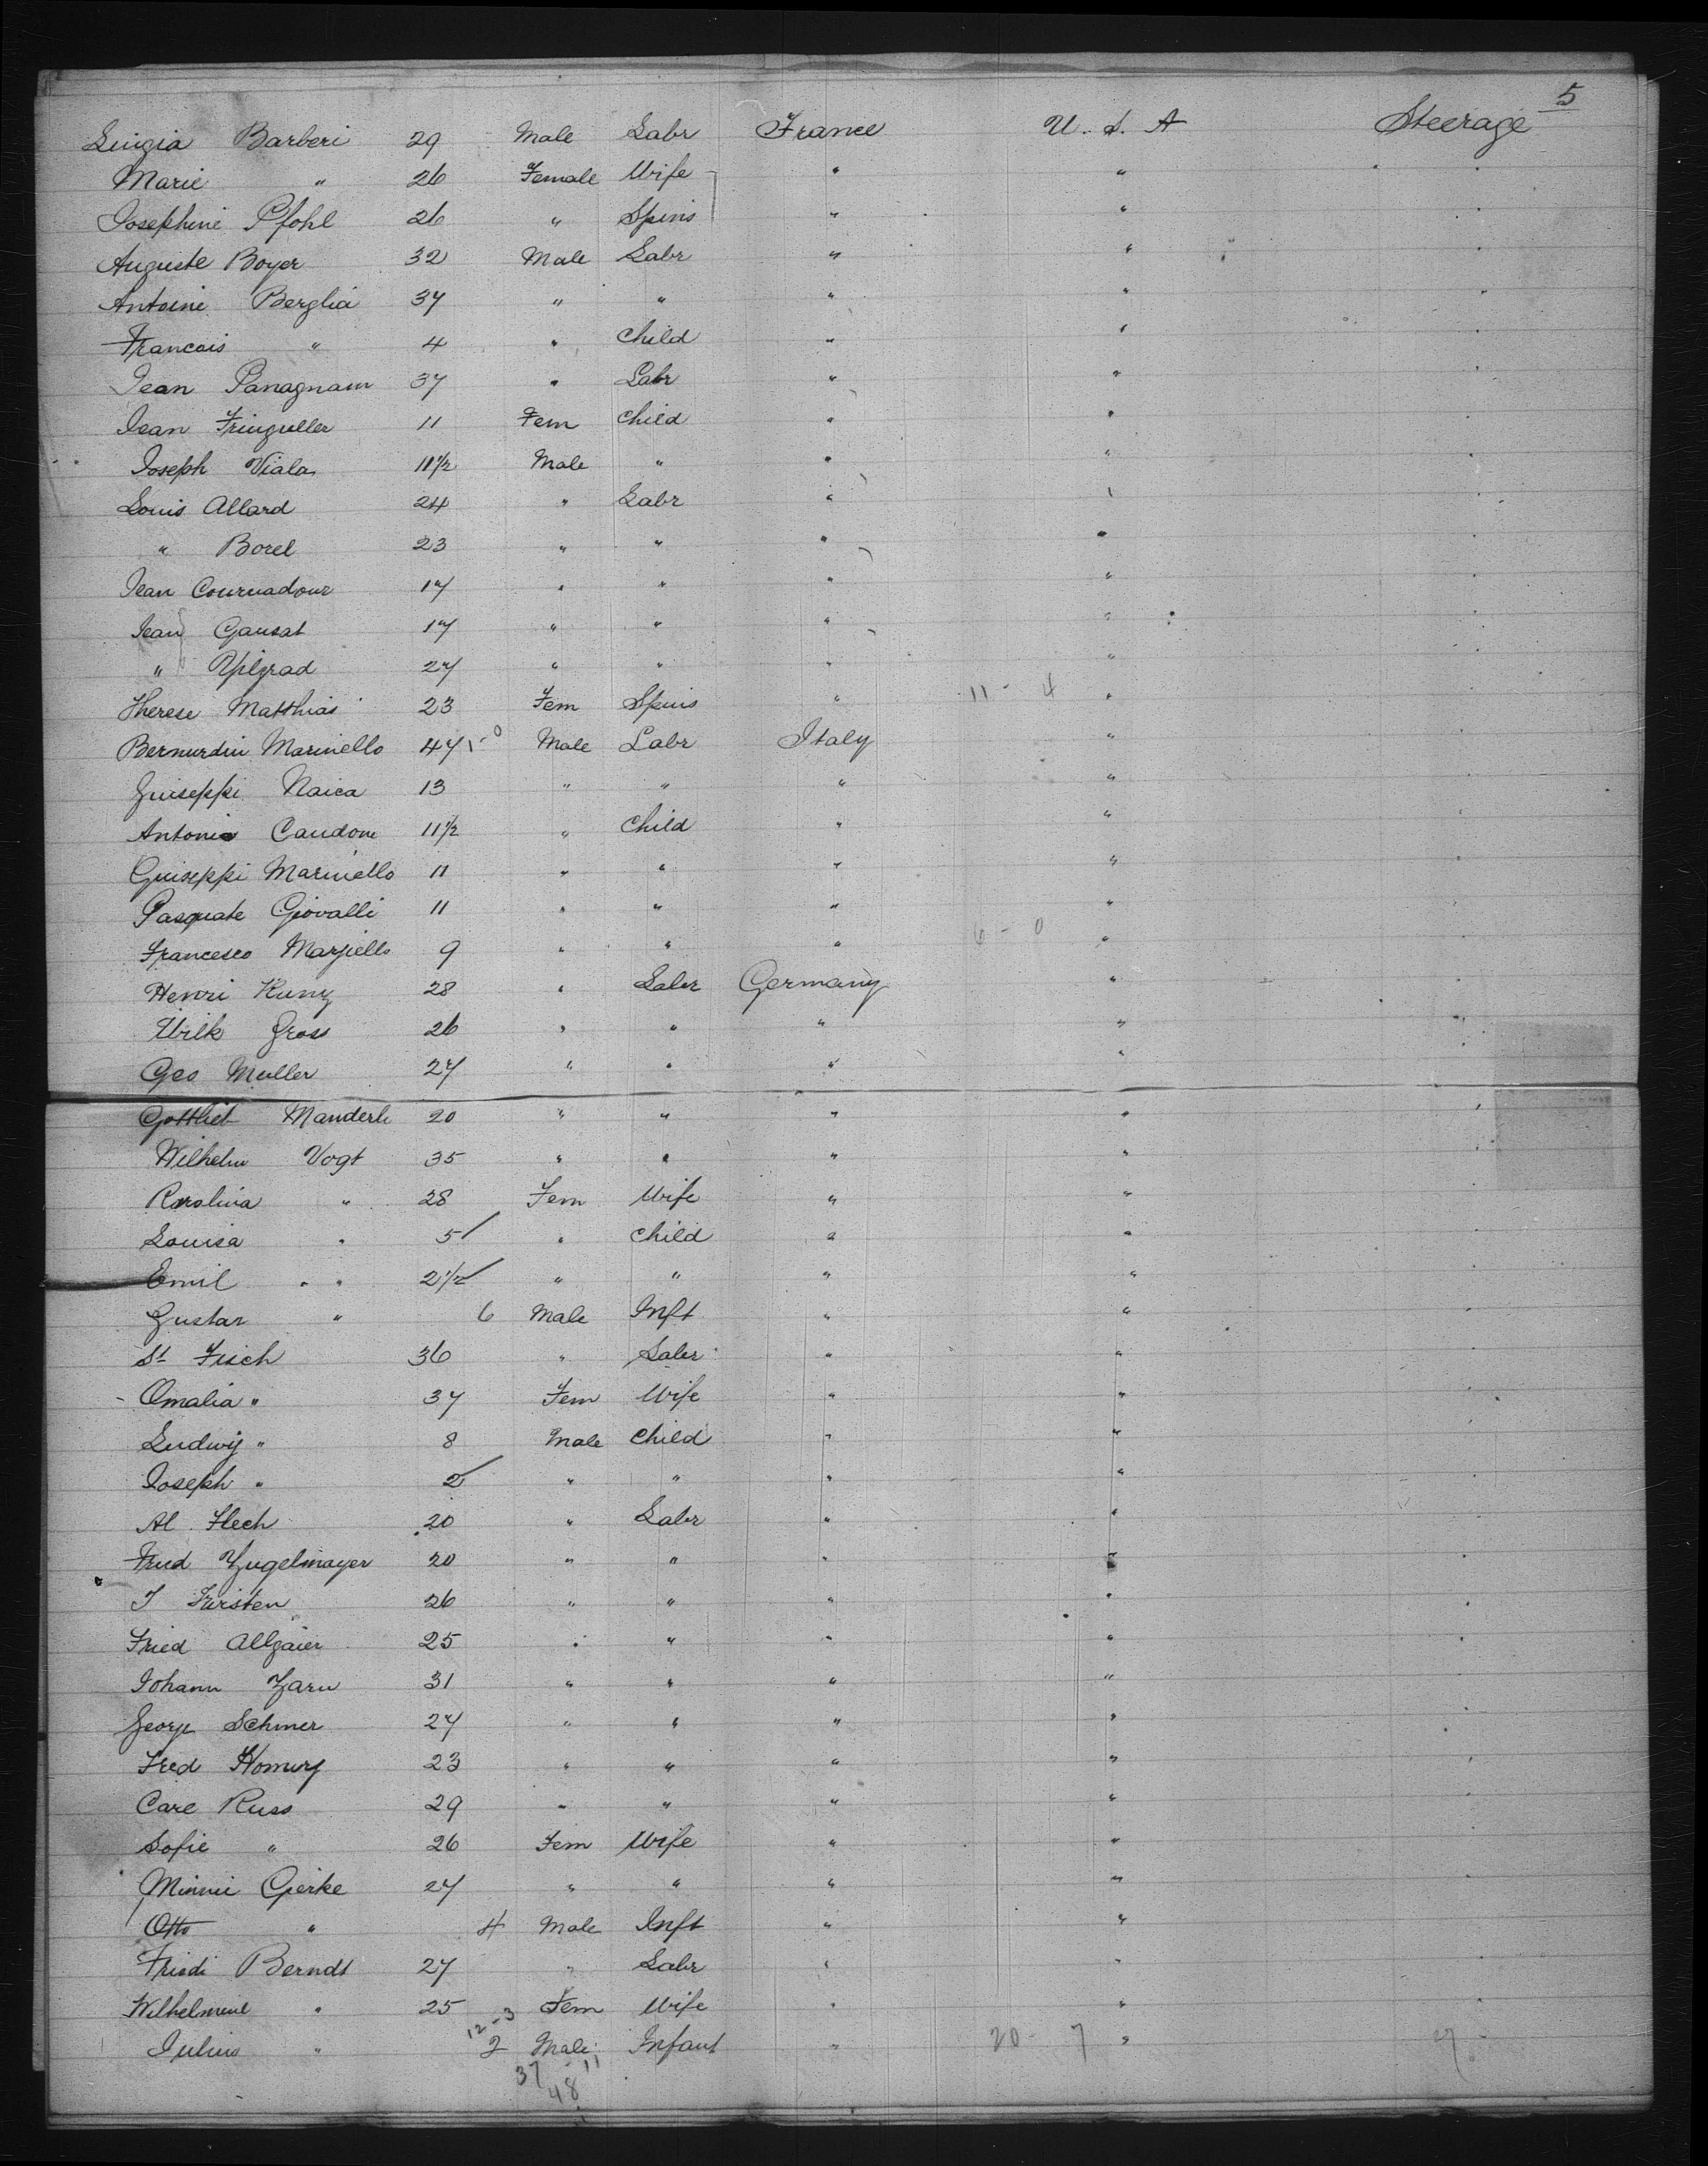 5
Luigia Barberi 29 Male Labr France U. S. A Steerage
Marie " 26 Female Wife " "
Josephine Pfohl 26 " Spins " "
Auguste Boyer 32 Male Labr " "
Antoine Berglia 37 " " " "
Francois " 4 " Child " "
Jean Panagnam 37 " Labr " "
Jean Fringuller 11 Fem Child " "
Joseph Viala 11 1/2 Male " " "
Louis Allard 24 " Labr " "
" Borel 23 " " " "
Jean Cournadour 17 " " " "
Jean Gausat 17 " " " "
" 27 " " " "
Therese Matthias 23 Fem Spins " 11 - 4 "
Bernurdin Marinello 47 1-0 Male Labr Italy "
Guiseppi Naica 13 " " " "
Antonio Caudone 11 1/2 " Child " "
Guiseppi Marinello 11 " " " "
Pasquate Giovalli 11 " " " "
Francesco Marjiello 9 " " " 6 - 0 "
Henri Kuny 28 " Labr Germany "
Ulrik Gross 26 " " " "
Geo Muller 27 " " " "
Gottlieb Manderli 20 " " " "
Wilhelm Vogt 35 " " " "
Karolina " 28 Fem Wife " "
Louisa " 5 " Child " "
Emil " " 2 1/2 " " " "
Gustav " 6 Male Inft " "
St Fisch 36 " Labr " "
Omalia " 37 Fem Wife " "
Ludwig " 8 Male Child " "
Joseph " 2 " " " "
Al Flech 20 " Labr " "
Fried Zugelmayer 20 " " " "
J Fursten 26 " " " "
Fried Allgaier 25 " " " "
Johann Zarn 31 " " " "
George Schmer 27 " " " "
Fred Homung 23 " " " "
Carl Russ 29 " " " "
Sofie " 26 Fem Wife " "
Minnie Gerke 27 " " " "
Otto " 4 Male Inft " "
Friedi Berndt 27 " Labr " "
Wilhelmine " 25 Fem Wife " "
12-3
Julius " 2 Male Infant " 20 - 7 "
37 - 11
48